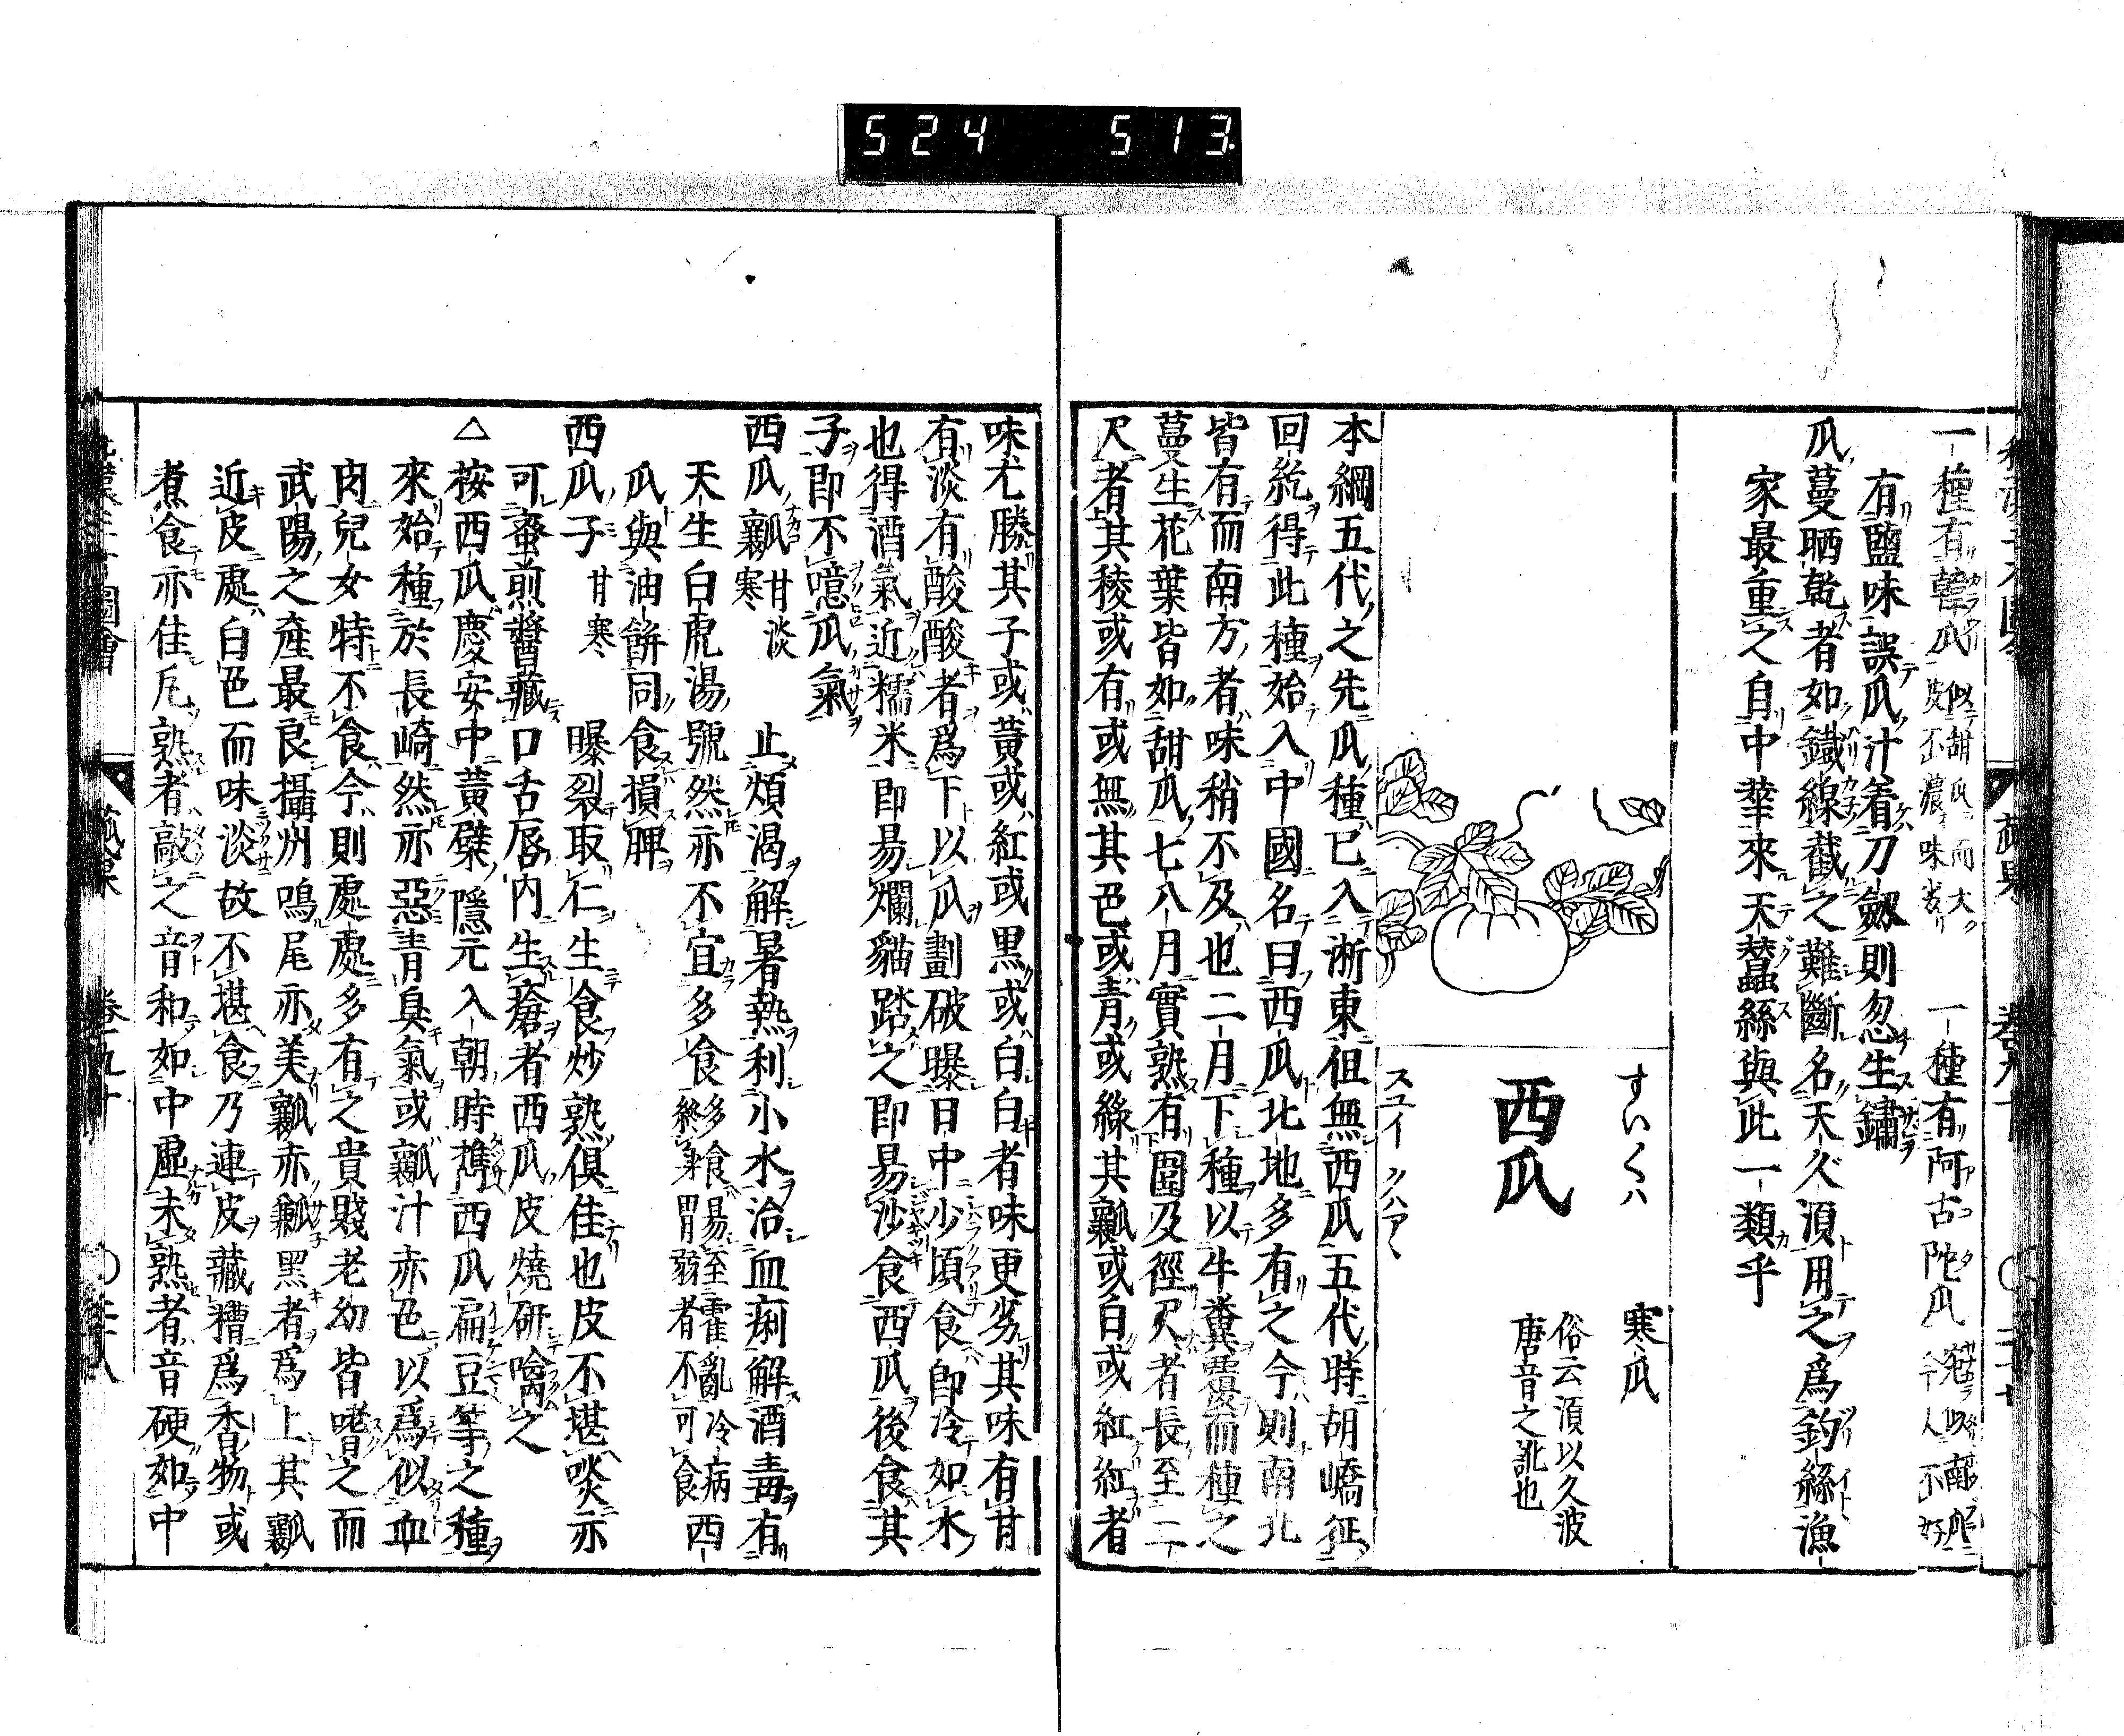 524 513
一種有韓瓜 似胡瓜而大 皮不濃味劣 一種有阿古陀瓜
有鹽味誤瓜汁着刀劔則忽生鏽
瓜蔓晒乾者如鐵線截之難斷名天久須用之爲釣絲漁
家最重之自中華來天蠶絲與此一類乎
西瓜
すいくハ
スユイ クハアヽ
寒瓜
俗云須以久波
唐音之訛也
本綱五代之先瓜種已入浙東但無西瓜五代時胡嶠征
回紇得此種始入中國名曰西瓜北地多有之今則南北
皆有而南方者味稍不及也二月下種以牛糞覆而種之
蔓生花葉皆如甜瓜七八月實熟有圍及徑尺者長至二
尺者其稜或有或無其色或青或綠其瓤或白或紅紅者
味尤勝其子或黃或紅或黒或白白者味更劣其味有甘
有淡有酸酸者爲下以瓜劃破曝日中少頃食即冷如水
也得酒氣近糯米即易爛貓踏之即易沙食西瓜後食其
子即不噫瓜氣
西瓜瓤 甘淡寒 止煩渴解暑熱利小水治血痢解酒毒有
天生白虎湯號然亦不宜多食 多食易至霍亂冷病 終身胃弱者不可食 西
瓜與油餅同食損脾
西瓜子 甘寒 曝裂取仁生食炒熟倶佳也皮不堪啖亦
可蜜煎醬藏口舌唇内生瘡者西瓜皮燒研噙之
△按西瓜慶安中黃檗隱元入朝時携西瓜扁豆等之種
來始種於長崎然亦惡青臭氣或瓤汁赤色以爲似血
肉兒女特不食今則處處多有之貴賤老幼皆嗜之而
武陽之產最良攝州鳴尾亦美瓤赤瓣黒者爲上其瓤
近皮處白色而味淡故不堪食乃連皮藏糟爲香物或
煮食亦佳凡熟者敲之音和如中虛未熟者音硬如中